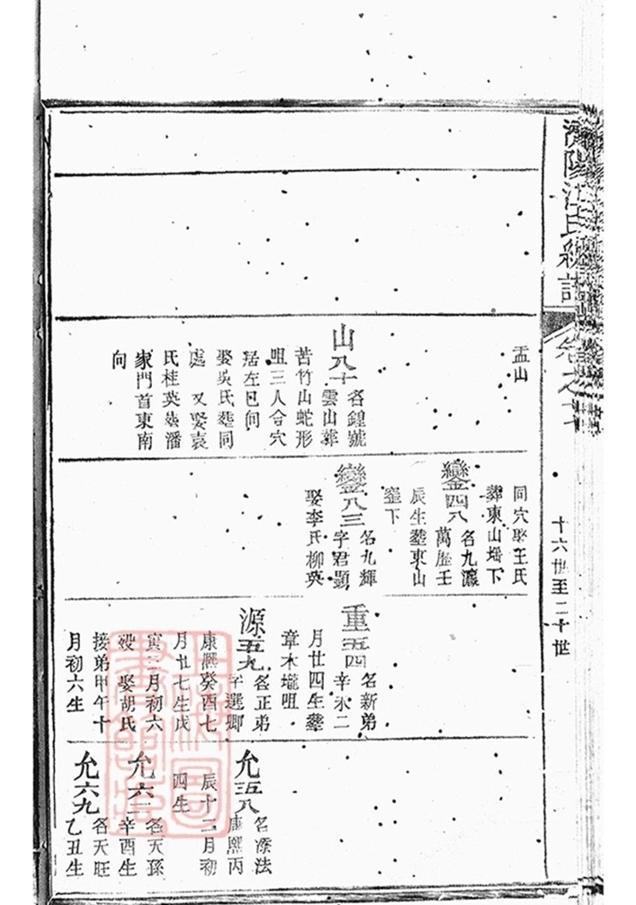 濟陽江氏總譜
卷之十
十六世至二十世
盂山
山八十
名鍠號
雲山葬
苦竹山蛇形
咀三人合穴
居左巳向
娶吳氏塟同
處 又娶袁
氏桂英葬潘
家門首東南
向
同穴娶王氏
葬東山塝下
鑾四八
名九瀛
萬曆壬
辰生塟東山
塋下
鑾八三
名九輝
字君顯
娶李氏柳英
重五四
名新弟
辛未二
月廿四生塟
章木壠咀
源五九
名正弟
字選卿
康熙癸酉七
月廿七生戊
寅二月初六
歿 娶胡氏
接弟甲午十
月初六生
允五八
名添法
康熙丙
辰十二月初
四生
允六一
名天孫
辛酉生
允六九
名天旺
乙丑生